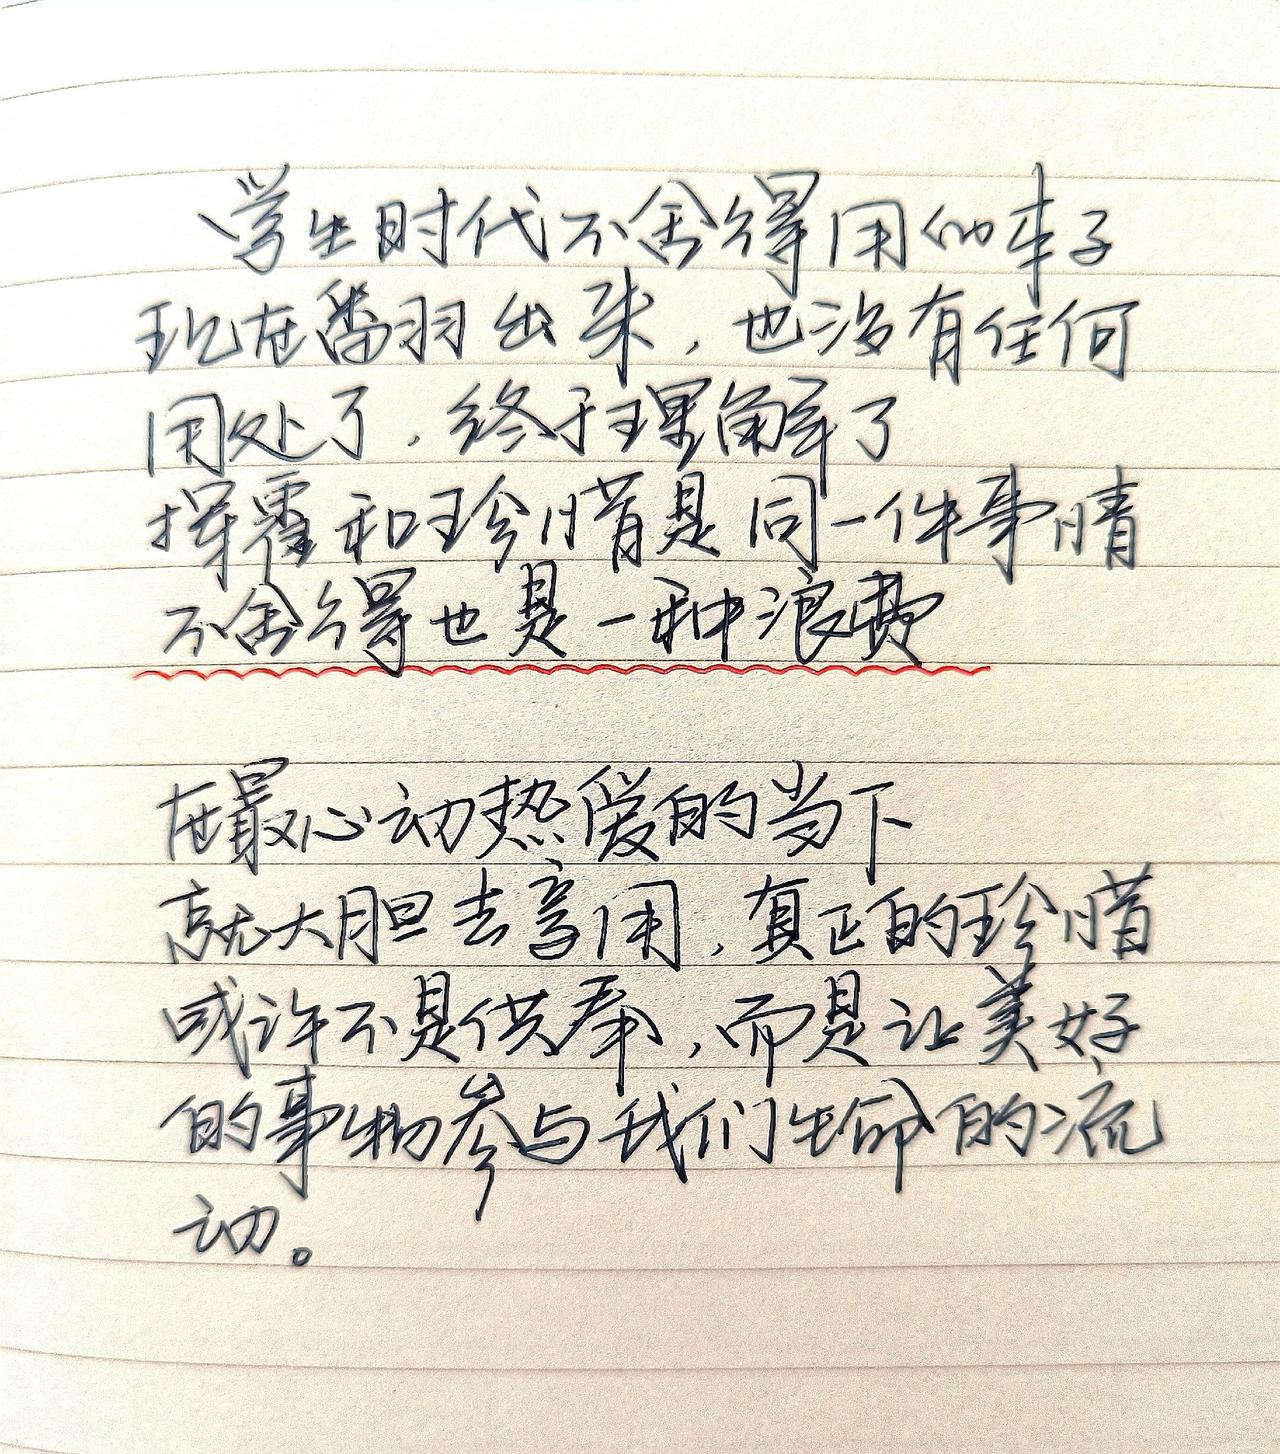 学生时代不舍得用的本子
现在翻出来，也没有任何
用处了，终于理解了
挥霍和珍惜是同一件事情
不舍得也是一种浪费
在最心动热爱的当下
就大胆去享用，真正的珍惜
或许不是供奉，而是让美好
的事物参与我们生命的流
动。